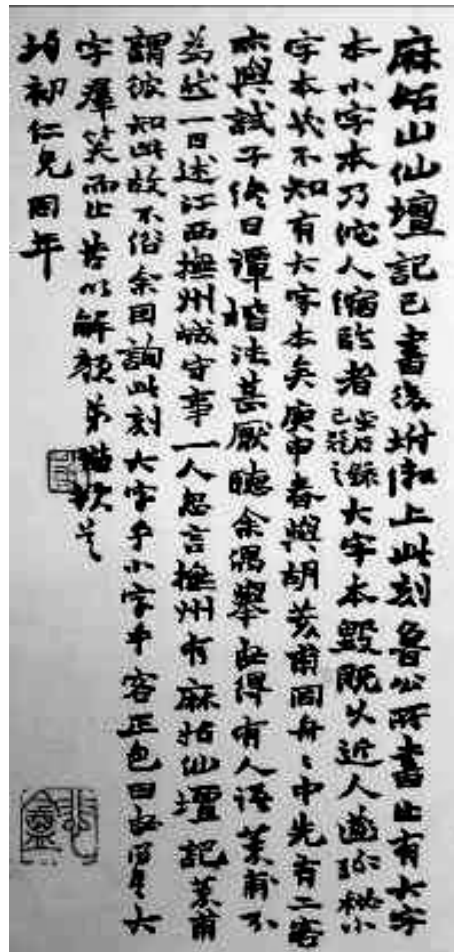 麻姑山仙壇記已書後坿繳上此刻魯公所書止有大字
本小字本乃後人縮臨者金石錄已說之大字本毀既久近人遂珍秘小
字本然不知有大字本矣庚申春與胡荄甫同舟〻中先有二客
亦與試子終日譚楷法甚厭聽余偶舉
為然一日述江西撫州城守事一人忽言撫州有麻姑仙壇記荄甫
謂彼知此故不俗余因詢此刻大字乎小字乎客正色曰大
字羣笑而止書以解顏弟
均初仁兄同年